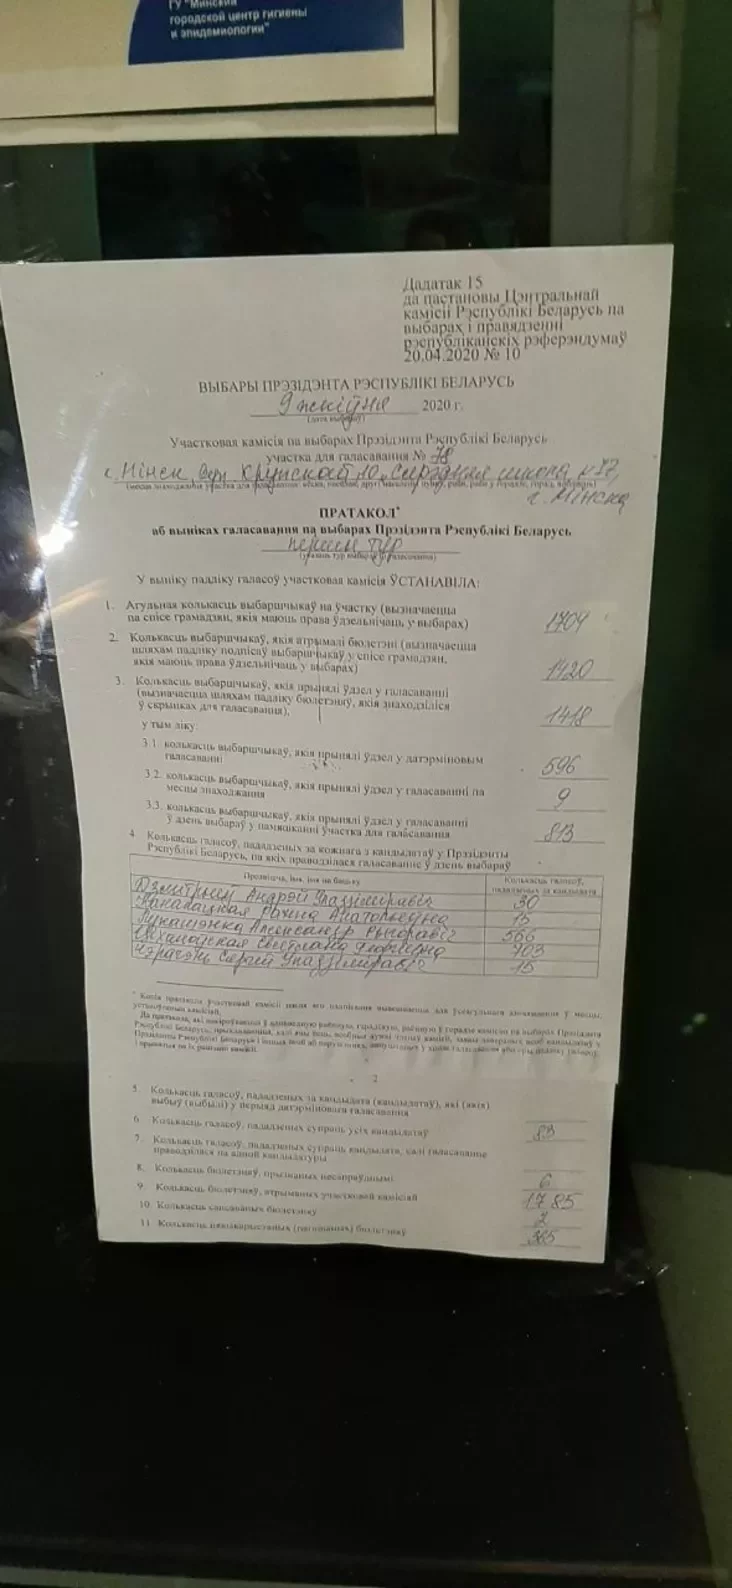 ГУ "Минский
городской центр гигиены
и эпидемиологии"
Дадатак 15
да пастановы Цэнтральнай
камісіі Рэспублікі Беларусь па
выбарах і правядзенні
рэспубліканскіх рэферэндумаў
20.04.2020 № 10
ВЫБАРЫ ПРЭЗІДЭНТА РЭСПУБЛІКІ БЕЛАРУСЬ
9 жніўня 2020 г.
(дата выбараў)
Участковая камісія па выбарах Прэзідэнта Рэспублікі Беларусь
участка для галасавання № 78
г. Мінск, вул. Крупскай 10, Сярэдняя школа № 77,
г. Мінска
ПРАТАКОЛ*
аб выніках галасавання па выбарах Прэзідэнта Рэспублікі Беларусь
першы тур
У выніку падліку галасоў участковая камісія ЎСТАНАВІЛА:
1. Агульная колькасць выбаршчыкаў на ўчастку (вызначаецца
па спісе грамадзян, якія маюць права ўдзельнічаць у выбарах) 1704
2. Колькасць выбаршчыкаў, якія атрымалі бюлетэні (вызначаецца
шляхам падліку подпісаў выбаршчыкаў у спісе грамадзян,
якія маюць права ўдзельнічаць у выбарах) 1420
3. Колькасць выбаршчыкаў, якія прынялі ўдзел у галасаванні
(вызначаецца шляхам падліку бюлетэняў, якія знаходзіліся
ў скрынках для галасавання), 1418
у тым ліку:
3.1. колькасць выбаршчыкаў, якія прынялі ўдзел у датэрміновым
галасаванні 596
3.2. колькасць выбаршчыкаў, якія прынялі ўдзел у галасаванні па
месцы знаходжання 9
3.3. колькасць выбаршчыкаў, якія прынялі ўдзел у галасаванні
ў дзень выбараў у памяшканні ўчастка для галасавання 813
4. Колькасць галасоў, пададзеных за кожнага з кандыдатаў у Прэзідэнты
Рэспублікі Беларусь, па якіх праводзілася галасаванне ў дзень выбараў
Прозвішча, імя, імя па бацьку Колькасць галасоў,
пададзеных за кандыдата
Дзмітрыеў Андрэй Уладзіміравіч 30
Канапацкая Ганна Анатольеўна 15
Лукашэнка Аляксандр Рыгоравіч 566
Ціханоўская Святлана Георгіеўна 703
Чэрачэнь Сяргей Уладзіміравіч 15
2
5. Колькасць галасоў, пададзеных за кандыдата (кандыдатаў), які (якія)
выбыў (выбылі) у перыяд датэрміновага галасавання
6. Колькасць галасоў, пададзеных супраць усіх кандыдатаў 83
7. Колькасць галасоў, пададзеных супраць кандыдата, калі галасаванне
праводзілася па адной кандыдатуры
8. Колькасць бюлетэняў, прызнаных несапраўднымі 6
9. Колькасць бюлетэняў, атрыманых участковай камісіяй 1785
10. Колькасць сапсаваных бюлетэняў 2
11. Колькасць нявыкарыстаных (пагашаных) бюлетэняў 365